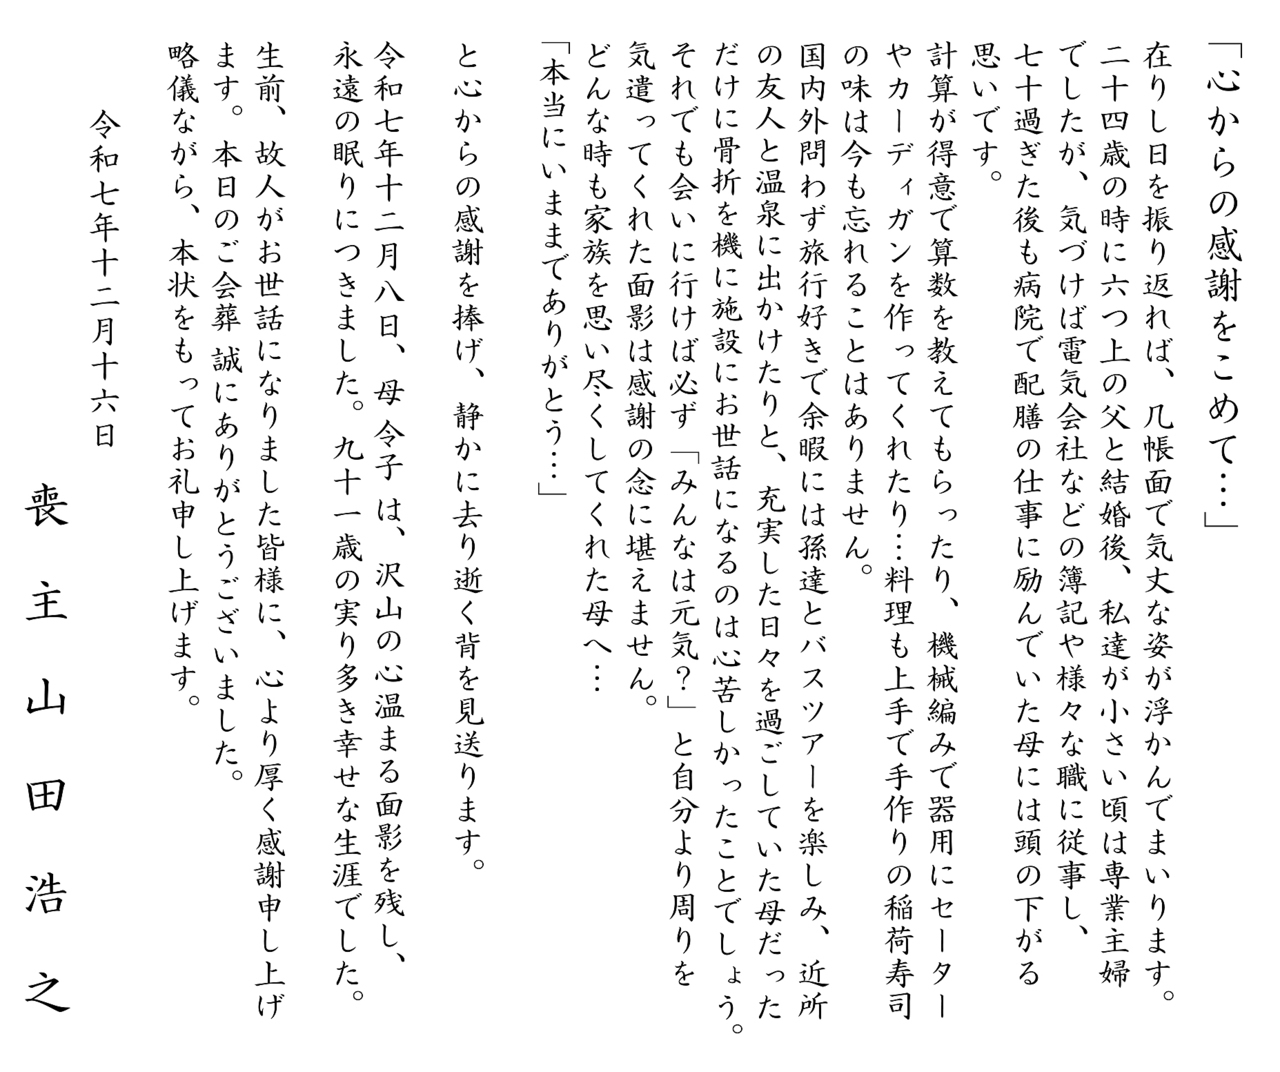 「心からの感謝をこめて…」
在りし日を振り返れば、几帳面で気丈な姿が浮かんでまいります。
二十四歳の時に六つ上の父と結婚後、私達が小さい頃は専業主婦
でしたが、気づけば電気会社などの簿記や様々な職に従事し、
七十過ぎた後も病院で配膳の仕事に励んでいた母には頭の下がる
思いです。
計算が得意で算数を教えてもらったり、機械編みで器用にセーター
やカーディガンを作ってくれたり…料理も上手で手作りの稲荷寿司
の味は今も忘れることはありません。
国内外問わず旅行好きで余暇には孫達とバスツアーを楽しみ、近所
の友人と温泉に出かけたりと、充実した日々を過ごしていた母だった
だけに骨折を機に施設にお世話になるのは心苦しかったことでしょう。
それでも会いに行けば必ず「みんなは元気？」と自分より周りを
気遣ってくれた面影は感謝の念に堪えません。
どんな時も家族を思い尽くしてくれた母へ…
「本当にいままでありがとう…」
と心からの感謝を捧げ、静かに去り逝く背を見送ります。
令和七年十二月八日、母 令子 は、沢山の心温まる面影を残し、
永遠の眠りにつきました。九十一歳の実り多き幸せな生涯でした。
生前、故人がお世話になりました皆様に、心より厚く感謝申し上げ
ます。本日のご会葬 誠にありがとうございました。
略儀ながら、本状をもってお礼申し上げます。
令和七年十二月十六日
喪主 山田浩之